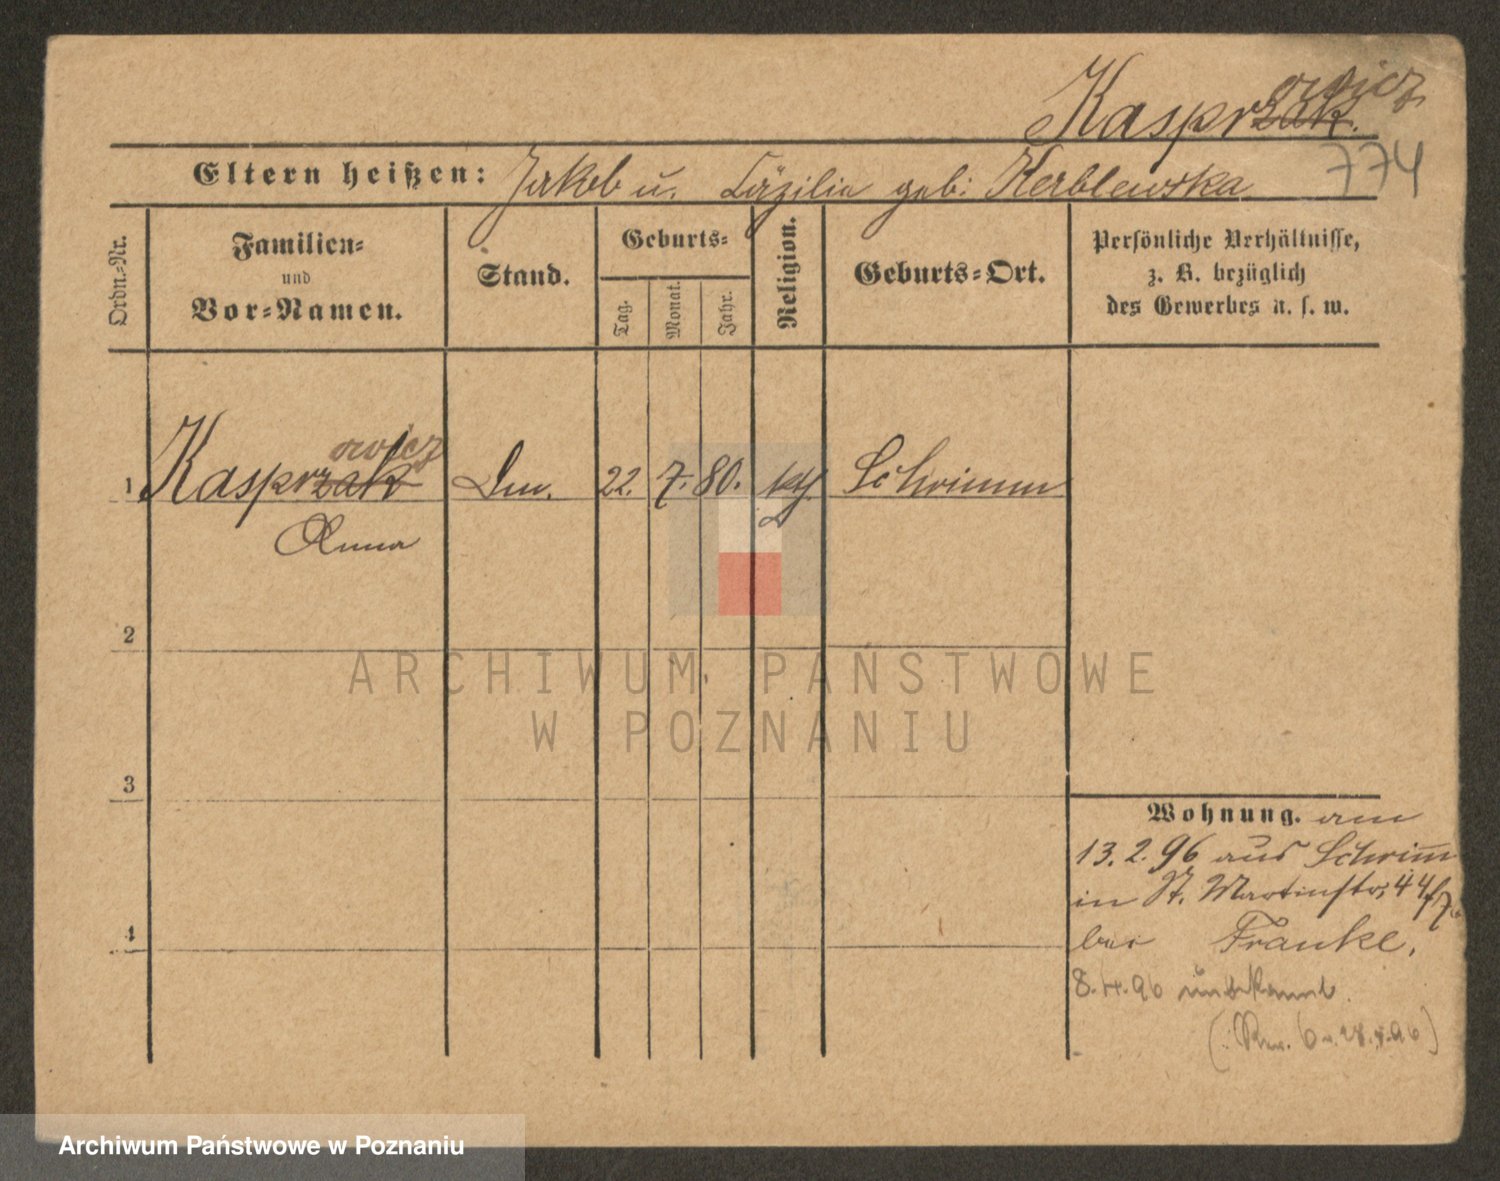 Kasprzak.
owicz
774
Eltern heißen: Jakob u. Cäzilia geb: Kerblewska
Ordn.-Nr.
Familien- und Vor-Namen.
Stand.
Geburts-
Tag.
Monat.
Jahr.
Religion.
Geburts-Ort.
Persönliche Verhältnisse,
z. B. bezüglich
des Gewerbes u. s. w.
owicz
1 Kasprzak 22. 7. 80. kth. Schrimm
Anna
2
3
4
Wohnung. am
13.2.96 aus Schrimm
in St. Martinstr. 44
bei Franke.
8.4.96 unbekannt.
ARCHIWUM PAŃSTWOWE
W POZNANIU
Archiwum Państwowe w Poznaniu